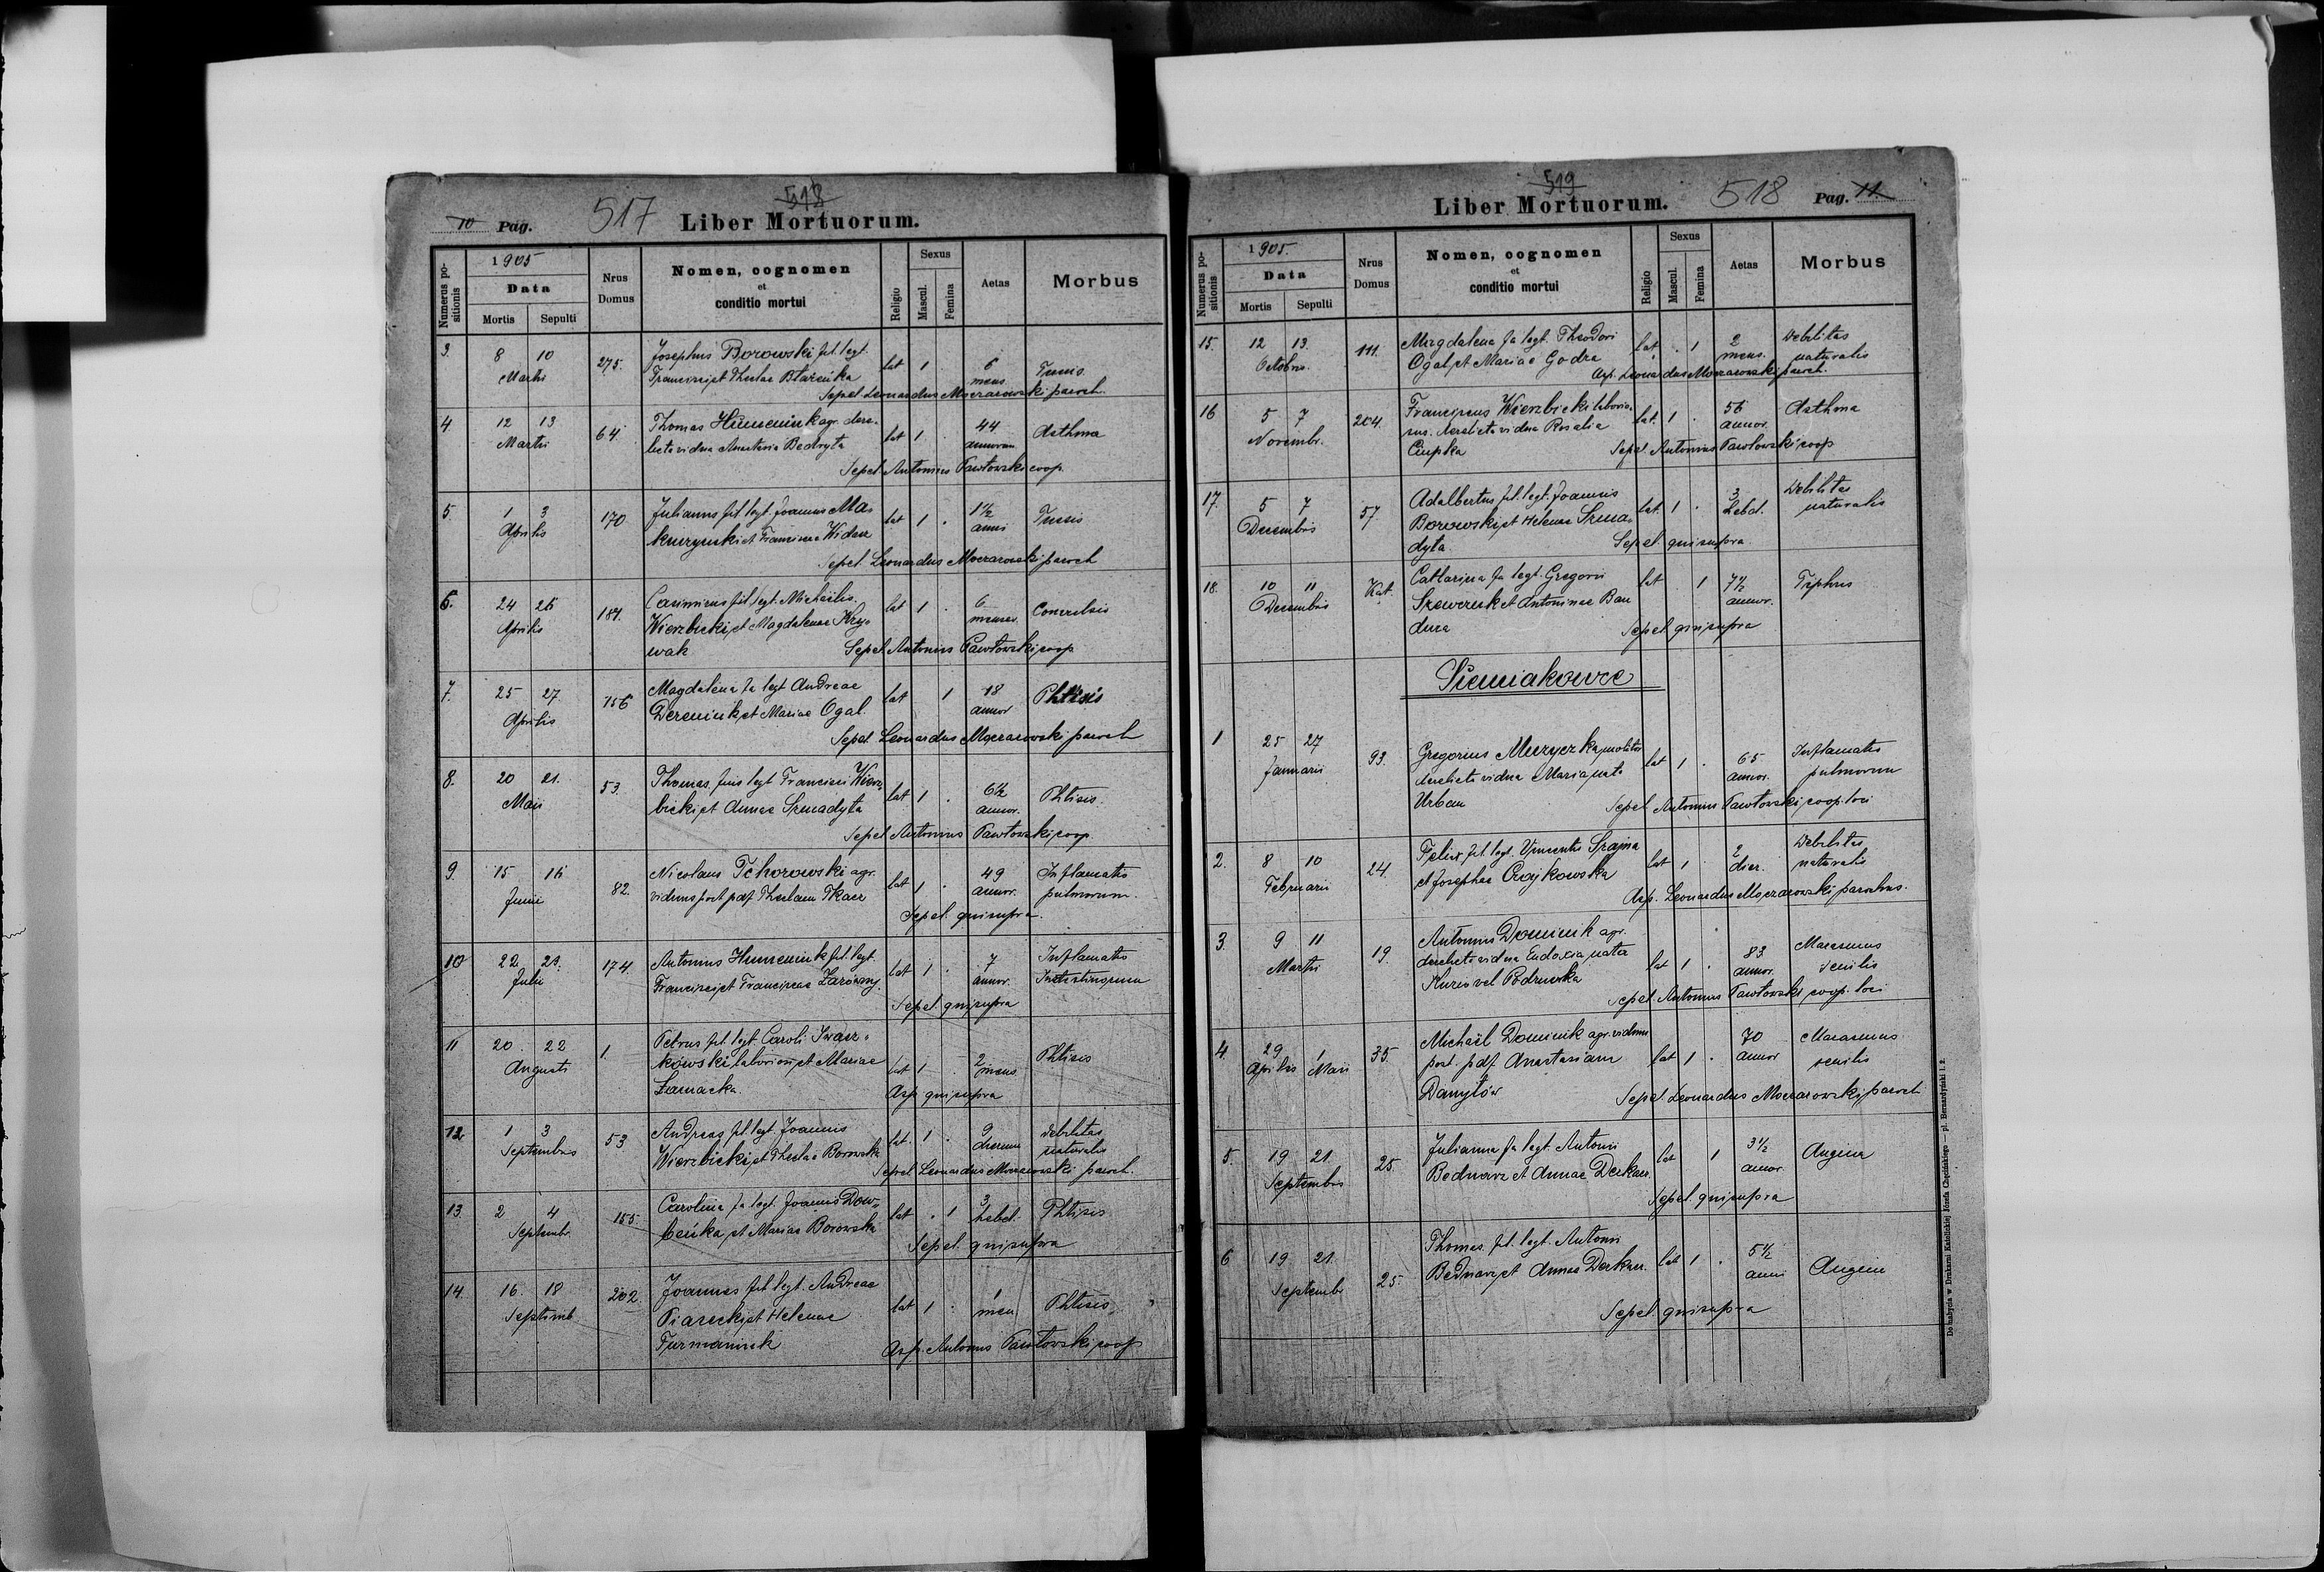 10 Pag. 517 518
Liber Mortuorum.
Numerus positionis
1905
Data
Mortis Sepulti
Nrus Domus
Nomen, cognomen
et
conditio mortui
Religio
Sexus
Mascul. Femina
Aetas
Morbus
3. 8 10 275. Josephus Borowski fil. legt. lat 1 6 Tussis
Martii Francisci et Theclae Błażeńka mens.
Sepel. Leonardus Moczarowski paroch.
4 12 13 64. Thomas Humeniuk agr. dere- lat 1 . 44 Asthma
Martii licta vidua Anastasia Bedryta annorum
Sepel. Antonius Pawłowski coop.
5. 1 3 170 Julianus fil legt. Joannis Ma- lat 1 . 1½ Tussis
Aprilis et Franciscae anni
Sepel. Leonardus Moczarowski paroch
6. 24 26 181. Casimirus fil legt. Michaelis lat 1 . 6 Convulsis
Aprilis Wierzbicki et Magdalenae Kry- menses
wak Sepel. Antonius Pawłowski coop
7. 25 27 156 Magdalena fa legt Andreae lat 1 18 Phtisis
Aprilis Dereniuk et Mariae Ogal. annor
Sepel. Leonardus Moczarowski paroch
8. 20 21. 53. Thomas filius legt Francisci Wierz- lat 1 . 6½ Phtisis.
Maii bicki et Annae Szmadyła annor.
Sepel Antonius Pawłowski coop.
9. 15 16 82. Nicolaus Tchorowski agr. lat 1 . 49 Inflamatio
Junii viduus post pdf Theclam Tkacz annor. pulmonum.
Sepel. qui supra.
10 22 23. 174. Antonius Humeniuk fil. legt. lat 1 . 7 Inflamatio
Julii Francisci et Franciscae Zarówny. annor. Intestinorum
Sepel. qui supra
11 20. 22 1. Petrus fil. legt. Caroli Iwasz-
Augusti kowski laboriosi et Mariae lat 1 . 2 mens. Phtisis
Asp qui supra
12. 1 3 53 Andreas fil. legt. Joannis lat. 1 . 9 Debilitas
Septembris Wierzbicki et Theclae Borowska dierum naturalis
Sepel. Leonardus Moczarowski paroch.
13. 2 4 155. Carolina fa legt. Joannis Dow- lat . 1 3 Phtisis
Septembr. beńka et Mariae Borowska hebd.
Sepel. qui supra
14. 16. 18 202. Joannes fil legt. Andreae lat 1 . 1 Phtisis
Septemb Piasecki et Helenae men.
Furmaniuk Asp. Antonius Pawłowski coop
519
Liber Mortuorum. 518 Pag. 11.
Numerus positionis
1905.
Data
Mortis Sepulti
Nrus Domus
Nomen, cognomen
et
conditio mortui
Religio
Sexus
Mascul. Femina
Aetas
Morbus
15. 12 13. 111. Magdalena fa legt. Theodori lat . 1 2 Debilitas
Octobris. Ogal et Mariae Godra mens. naturalis
Asp. Leonardus Moczarowski paroch.
16 5 7 204. Franciscus Wierzbicki laborio- lat. 1 . 56 Asthma
Novembr. sus. derelicta vidua Rosalia annor.
Ciupka Sepel. Antonius Pawłowski coop
17. 5 7 57. Adalbertus fil. legt. Joannis lat. 1 . 3 Debilitas
Decembris Borowski et Helenae Szma- hebd. naturalis
dyła Sepel. qui supra.
18. 10 11 Kat. Catharina fa legt. Gregorii lat 1 7½ Tiphus
Decembris Szewczuk et Antoninae Ban annor.
dura Sepel qui supra
Sieniakowce
1 25 27 93. Gregorius Muzyczka molitor lat 1 . 65 Inflamatio
Januarii derelicta vidua Maria nata annor. pulmonum
Urban Sepel Antonius Pawłowski coop. loci
2. 8 10 24. Felix fil. legt. Vincentii Szajna lat 1 2 Debilitas
Februarii et Josephae Czajkowska dier. naturalis
Asp. Leonardus Moczarowski parochus.
3. 9 11 19. Antonius Dominik agr. lat 1 . 83 Marasmus
Martii derelicta vidua Eudoxia nata annor. senilis
vel Sepel Antonius Pawłowski coop. loci
4 29 1 35. Michaël Dominik agr. viduus lat 1 . 70 Marasmus
Aprilis Maii post pdf Anastasiam annor senilis
Danyłów Sepel Leonardus Moczarowski paroch
5. 19 21. 25. Julianna fa legt. Antonii lat 1 3½ Angina
Septembris Bednarz et Annae Derkacz. annor.
Sepel. qui supra
6 19 21. 25. Thomas fil. legt. Antonii
Septembr Bednarz et Annae Derkacz. lat 1 . 5½ anni Angina
Sepel. qui supra
Do nabycia w Drukarni Katolickiej Józefa Chęcińskiego — pl. Bernardyński l. 2.